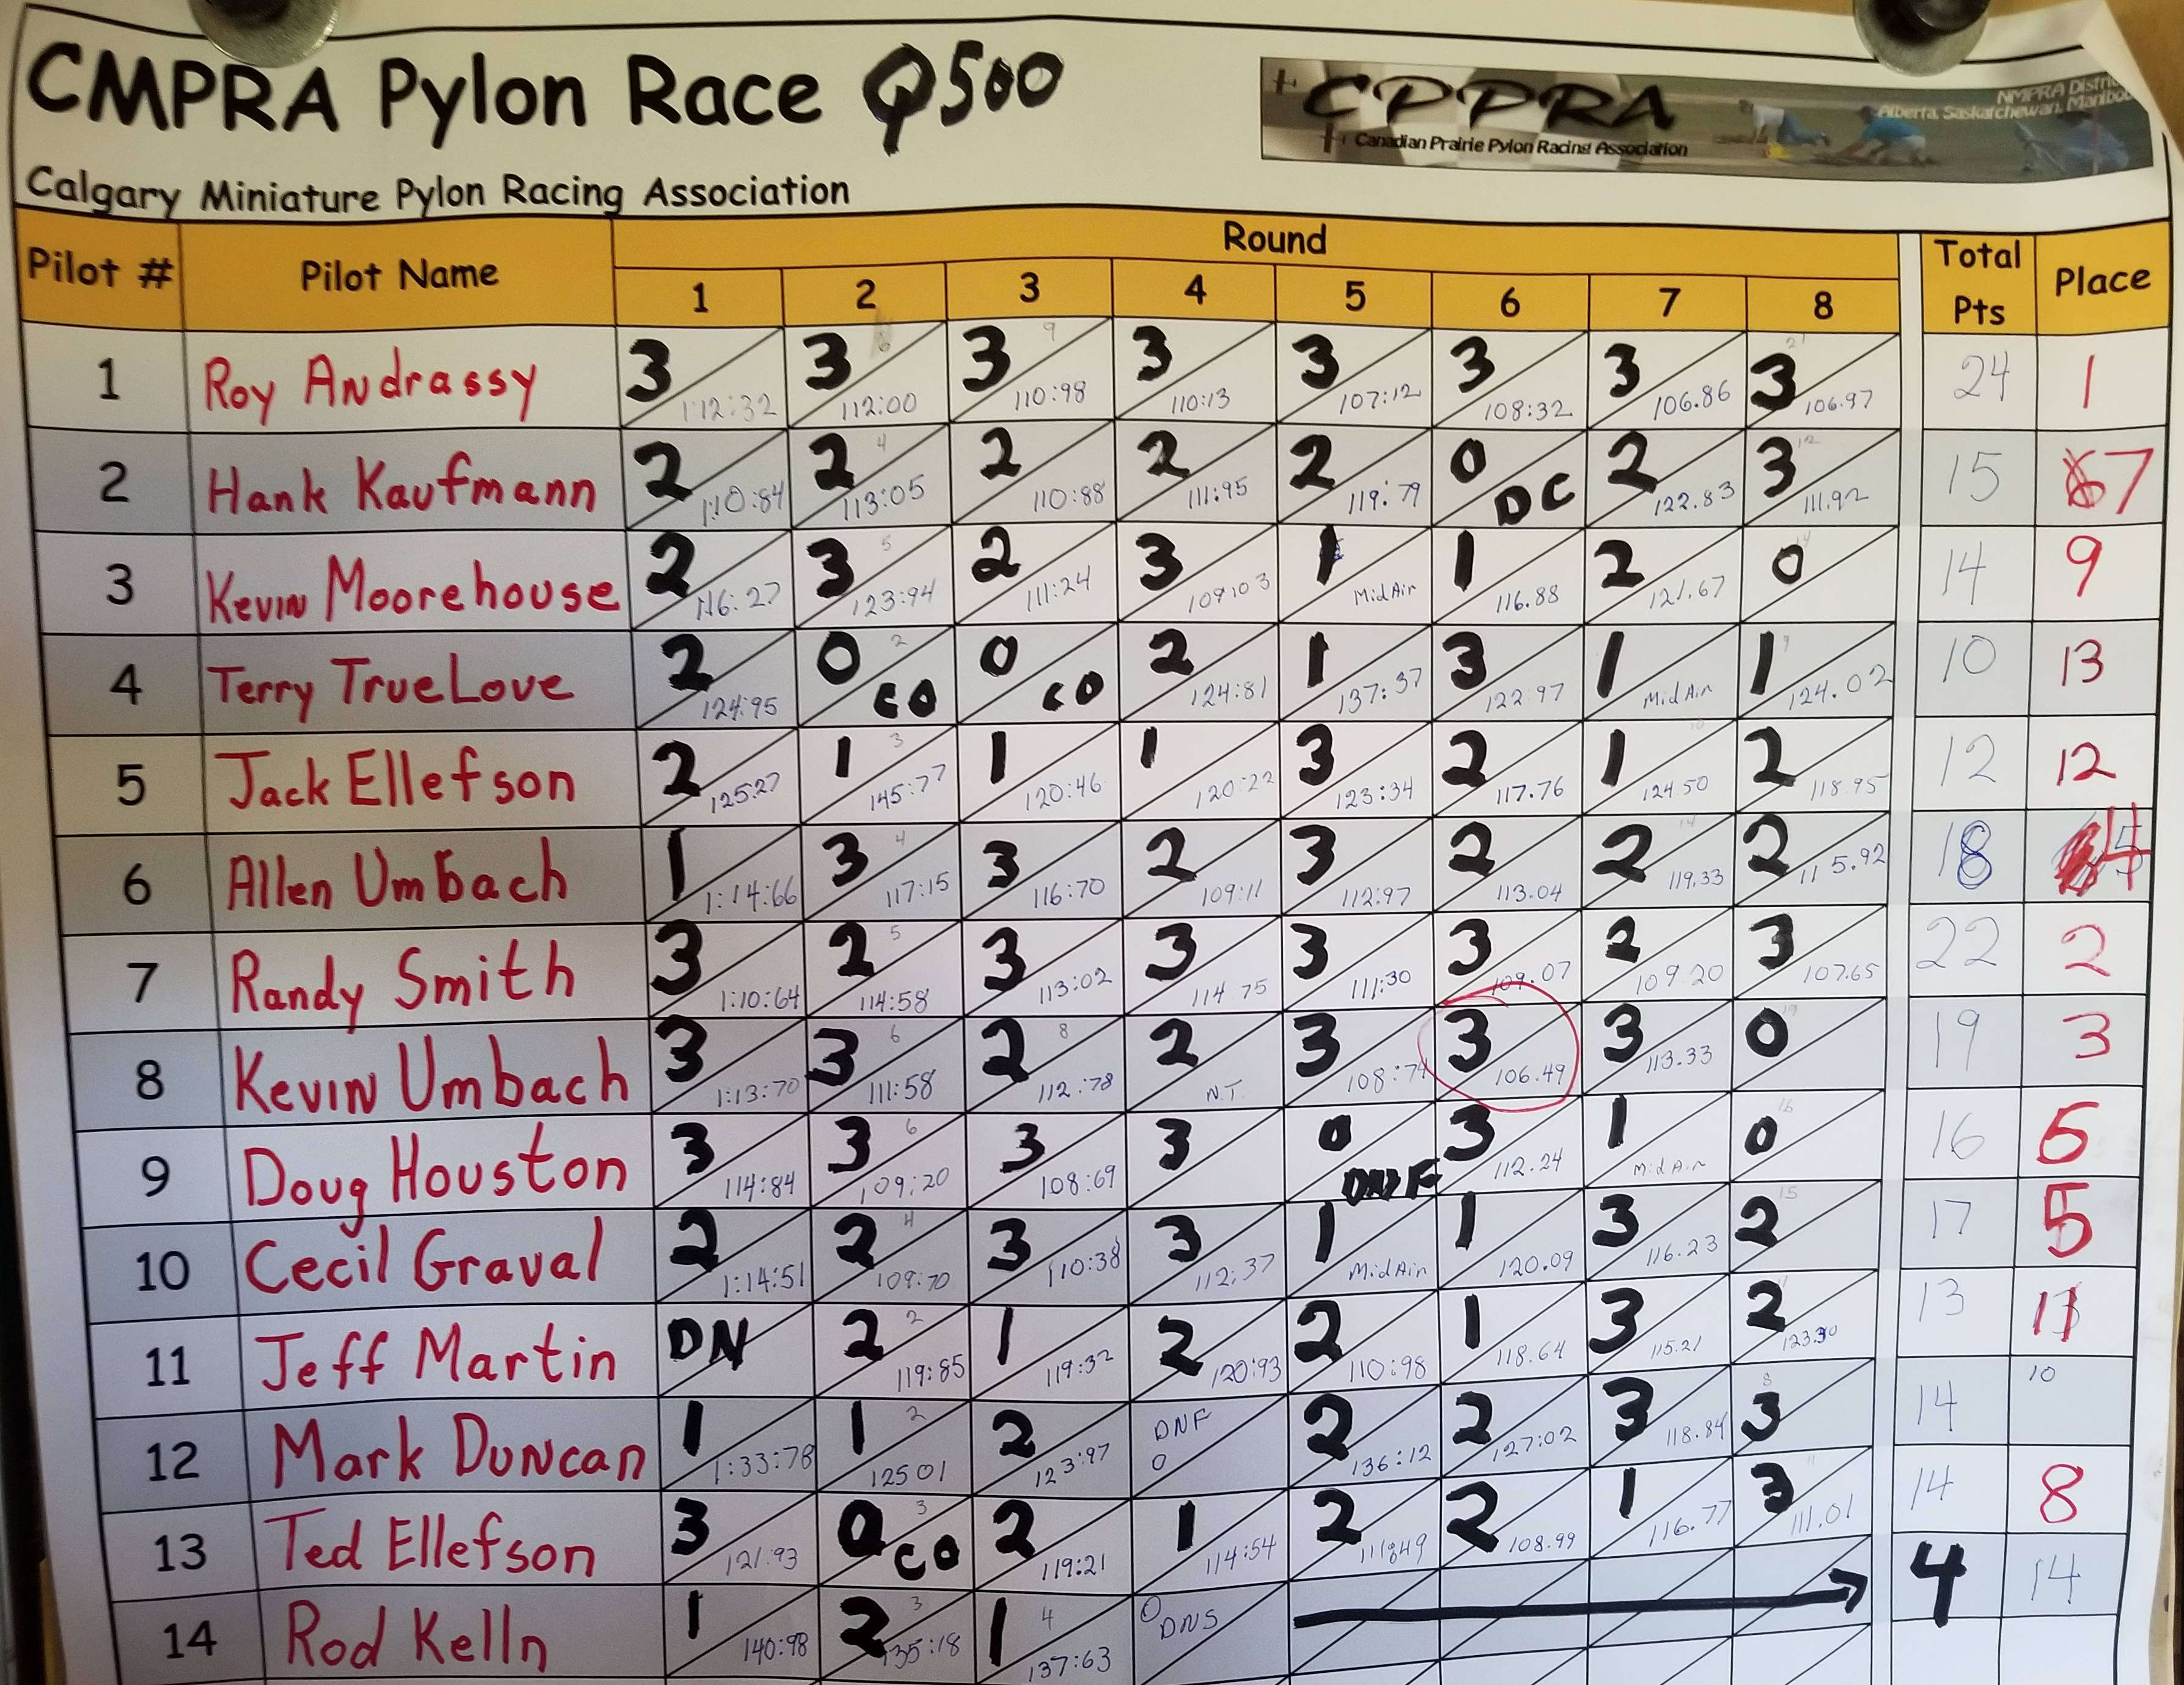 CMPRA Pylon Race Q500
CPPRA
Canadian Prairie Pylon Racing Association
NMPRA
Alberta, Saskatchewan,
Calgary Miniature Pylon Racing Association
Pilot # Pilot Name Round Total Pts Place
1 2 3 4 5 6 7 8
1 Roy Andrassy 3 1:12:32 3 112:00 3 9 110:98 3 110:13 3 107:12 3 108:32 3 106.86 3 106.97 24 1
2 Hank Kaufmann 2 1:10:84 2 4 113:05 2 110:88 2 111:95 2 119:79 0 DC 2 122.83 3 12 111.92 15 7
3 Kevin Moorehouse 2 116:27 3 5 123:94 2 111:24 3 109:03 1 MidAir 1 116.88 2 121.67 0 14 9
4 Terry TrueLove 2 124:95 0 2 CO 0 CO 2 124:81 1 137:37 3 122 97 1 MidAir 1 9 124.02 10 13
5 Jack Ellefson 2 125:27 1 3 145:77 1 120:46 1 120:22 3 123:34 2 117.76 1 124.50 2 118.95 12 12
6 Allen Umbach 1 1:14:66 3 4 117:15 3 116:70 2 109:11 3 112:97 2 113.04 2 14 119.33 2 115.92 18 4
7 Randy Smith 3 1:10:64 2 5 114:58 3 113:02 3 114 75 3 111:30 3 109.07 2 109.20 3 107.65 22 2
8 Kevin Umbach 3 1:13:70 3 6 111:58 2 8 112:78 2 N.T. 3 108:74 3 106.49 3 113.33 0 19 19 3
9 Doug Houston 3 114:84 3 6 109:20 3 108:69 3 0 DNF 3 112.24 1 MidAir 0 16 16 6
10 Cecil Graval 2 1:14:51 2 4 109:70 3 110:38 3 112:37 1 MidAir 1 120.09 3 116.23 2 15 17 5
11 Jeff Martin DN 2 2 119:85 1 119:32 2 120:93 2 110:98 1 118.64 3 115.21 2 11 123.30 13 11
12 Mark Duncan 1 1:33:78 1 2 125 01 2 123:97 DNF 0 2 136:12 2 127:02 3 118.84 3 8 14 10
13 Ted Ellefson 3 121:93 0 3 CO 2 119:21 1 114:54 2 111:49 2 108.99 1 116.77 3 11 111.01 14 8
14 Rod Kelln 1 140:98 2 3 135:18 1 4 137:63 0 DNS 4 14